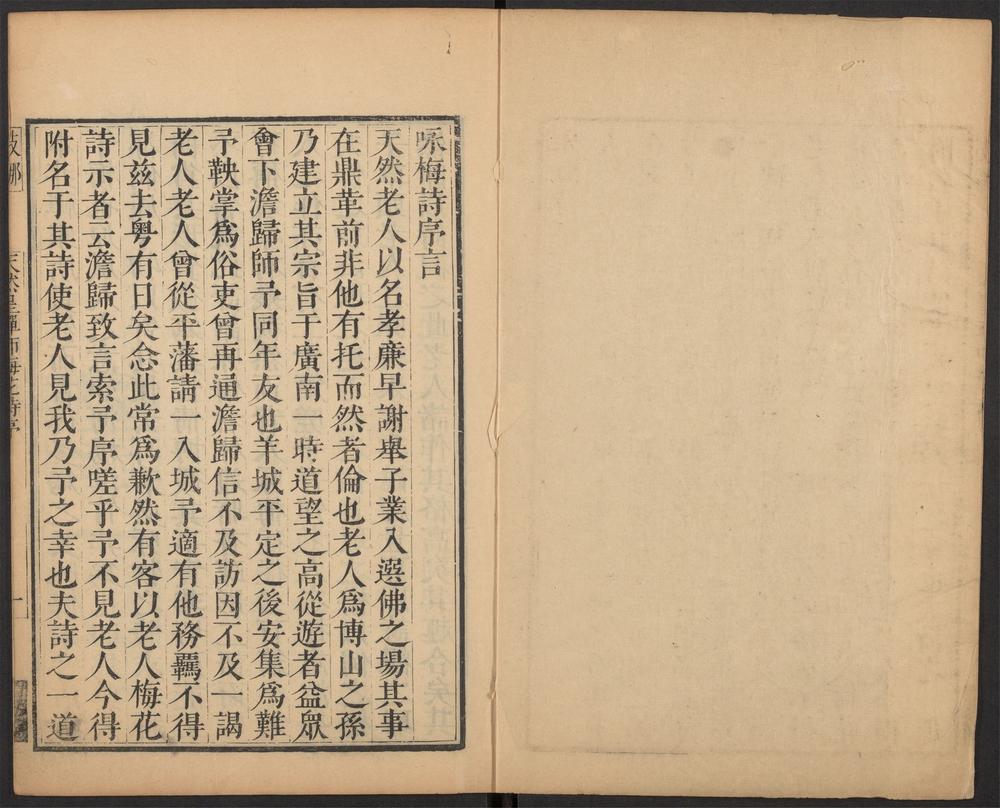 咏梅詩序言
天然老人以名孝廉早謝舉子業入選佛之場其事
在鼎革前非他有托而然者倫也老人爲博山之孫
乃建立其宗旨于廣南一時道望之高從遊者益眾
會下澹歸師予同年友也羊城平定之後安集爲難
予鞅掌爲俗吏曾再通澹歸信不及訪因不及一謁
老人老人曾從平藩請一入城予適有他務羈不得
見兹去粤有日矣念此常爲歉然有客以老人梅花
詩示者云澹歸致言索予序嗟乎予不見老人今得
附名于其詩使老人見我乃予之幸也夫詩之一道
天然昰禪師梅花詩序
一